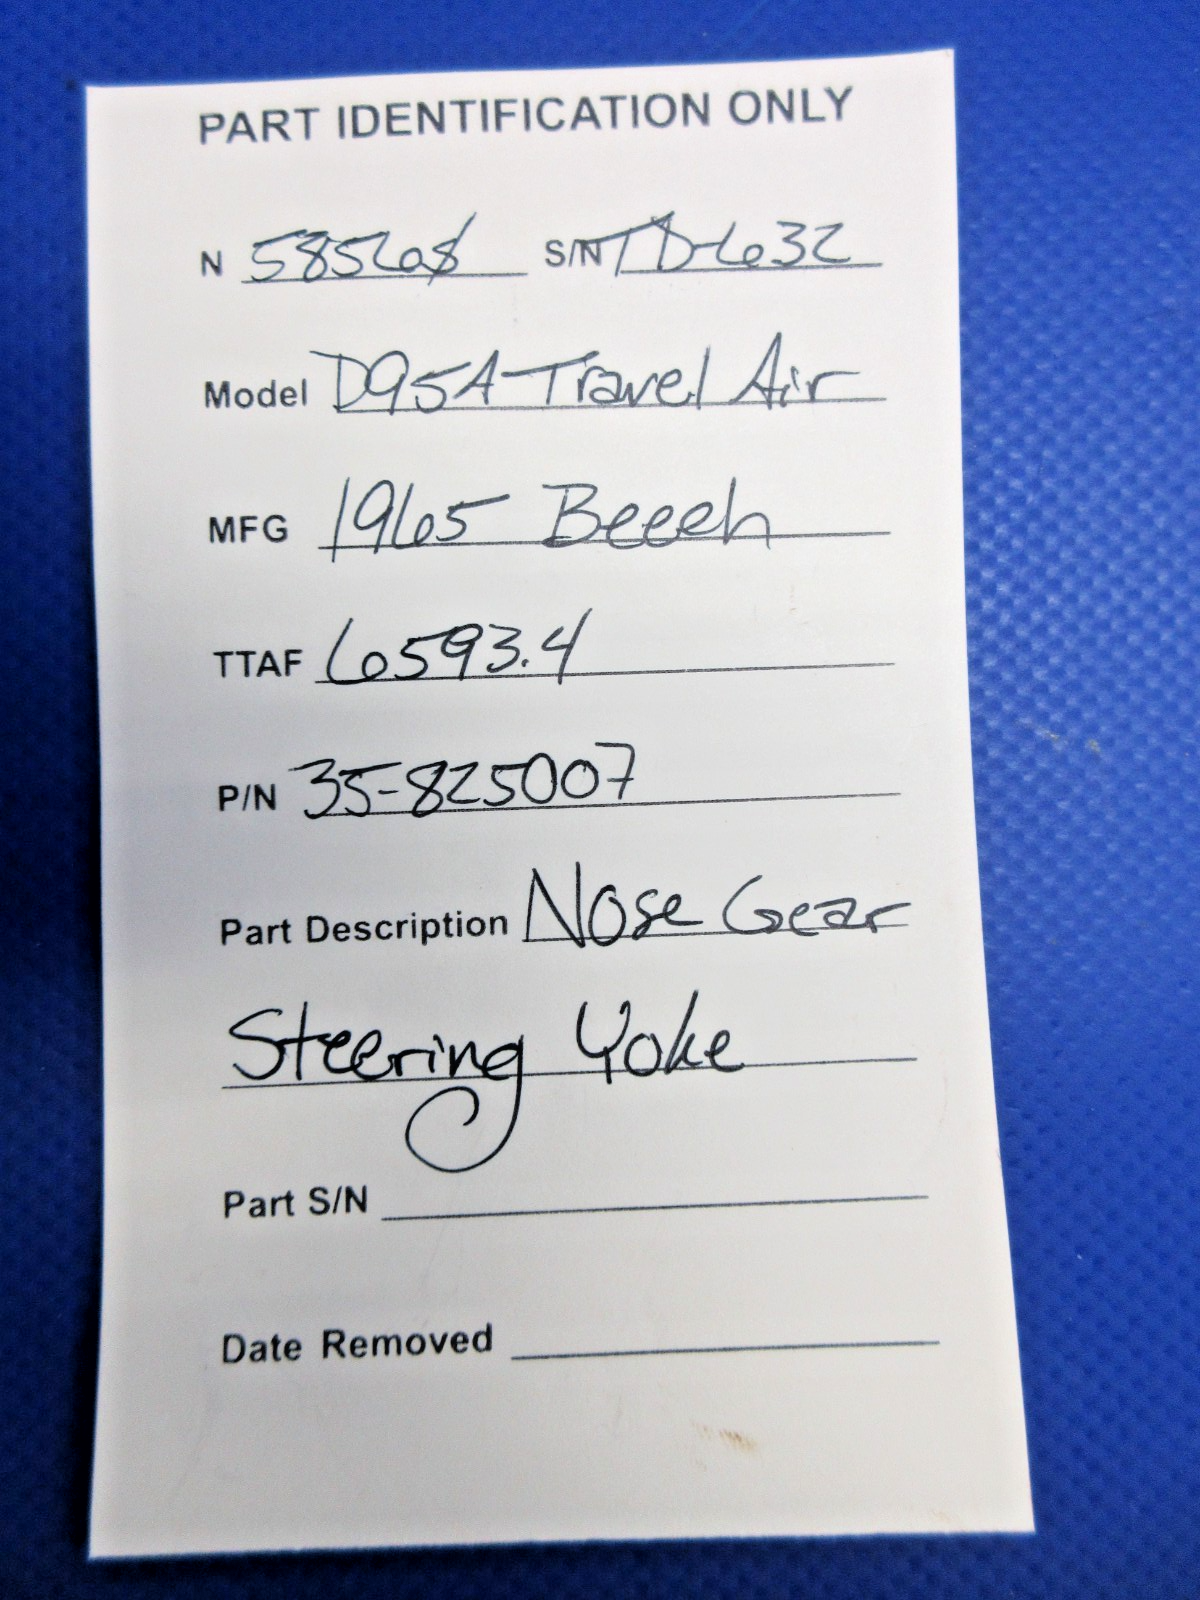 PART IDENTIFICATION ONLY
N 58568 S/N TD-632
Model D95A Travel Air
MFG 1965 Beech
TTAF 6593.4
P/N 35-825007
Part Description Nose Gear
Steering Yoke
Part S/N
Date Removed